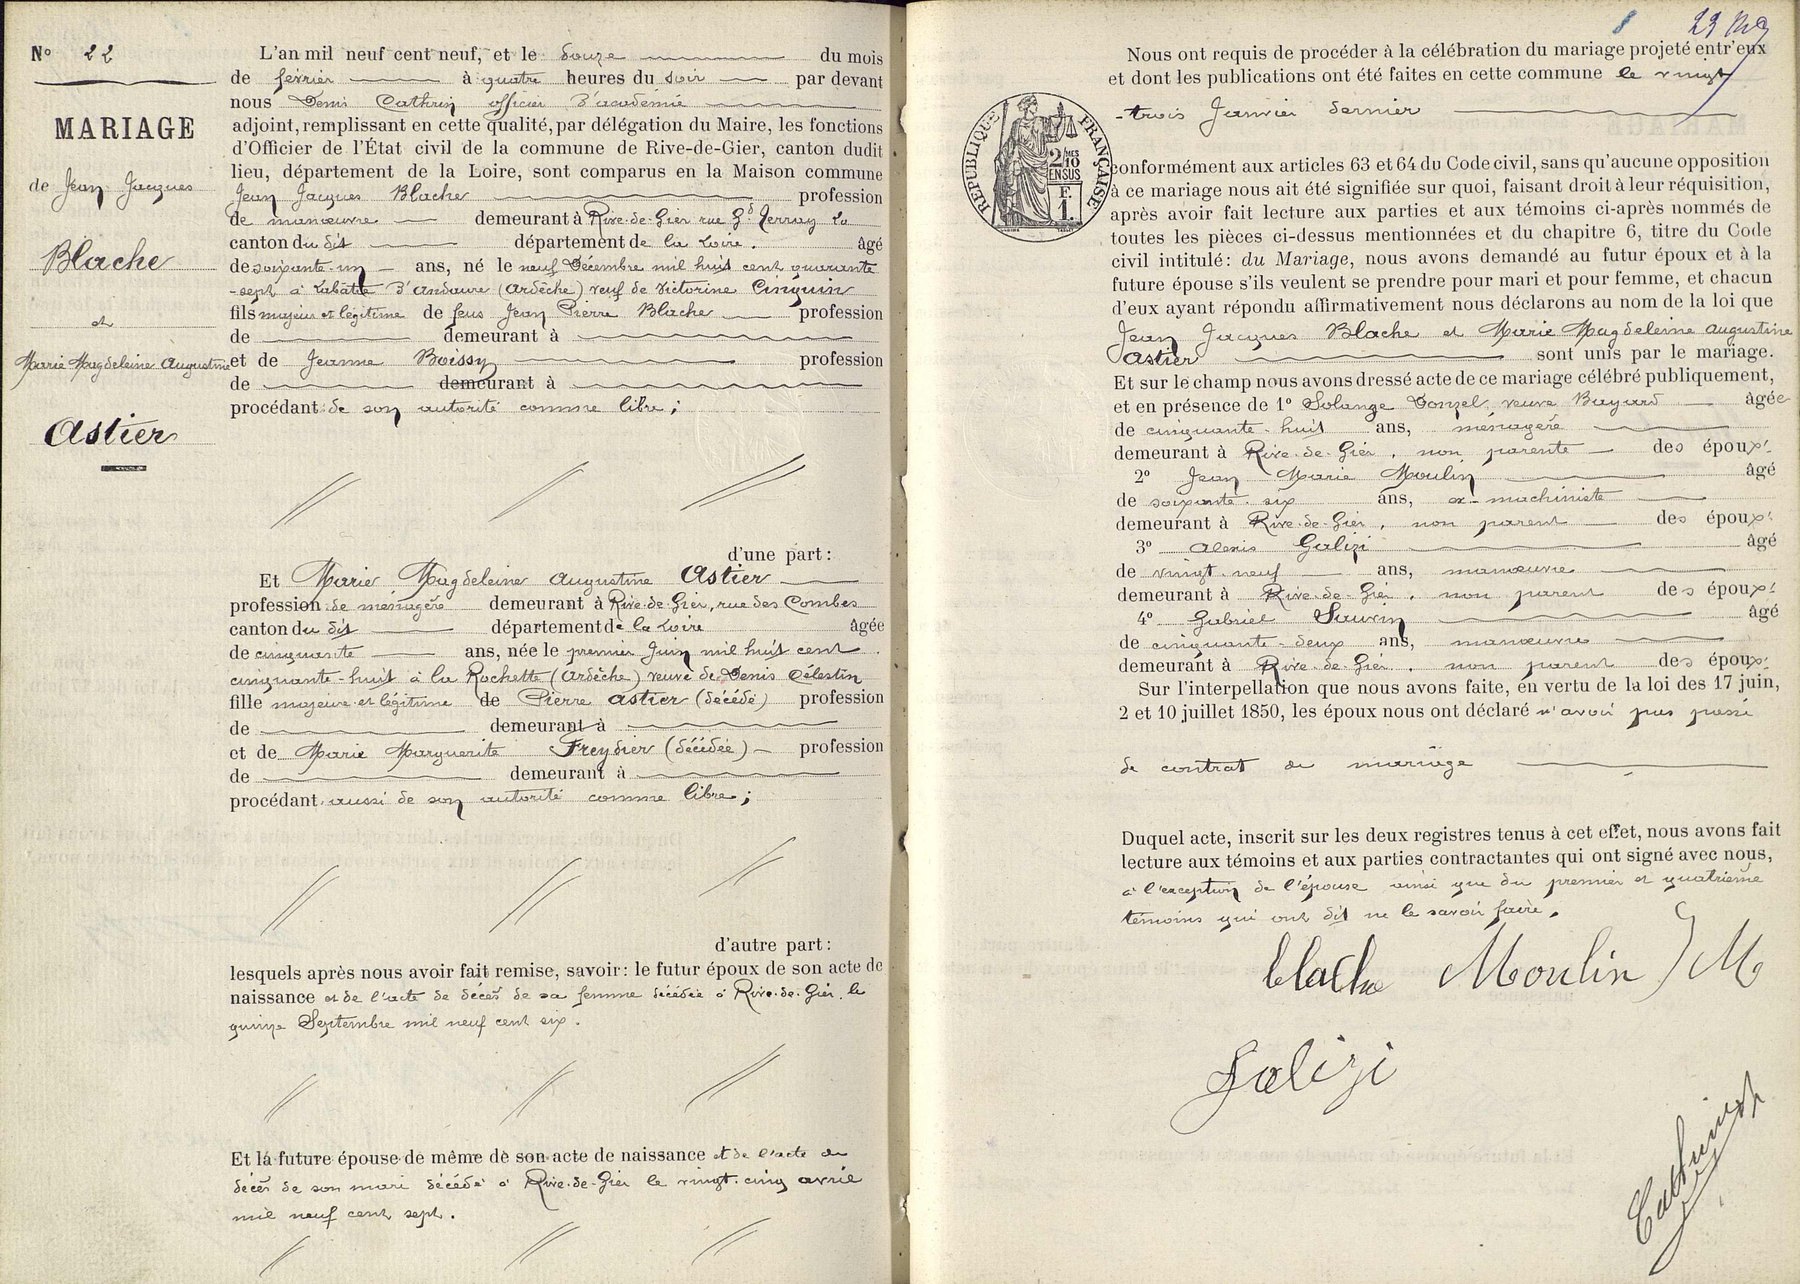 N° 22
MARIAGE
de Jean Jacques
Blache
et
Marie Magdeleine Augustine
Astier
L'an mil neuf cent neuf, et le douze du mois
de février à quatre heures du soir par devant
nous Denis Cathrin officier d'académie
adjoint, remplissant en cette qualité, par délégation du Maire, les fonctions
d'Officier de l'État civil de la commune de Rive-de-Gier, canton dudit
lieu, département de la Loire, sont comparus en la Maison commune
Jean Jacques Blache profession
de manœuvre demeurant à Rive-de-Gier rue Gd
canton du dit département de la Loire. âgé
de soixante-un ans, né le neuf Décembre mil huit cent quarante
-sept à Labatie d'Andaure (Ardèche) veuf de Victorine Cinquin
fils majeur et légitime de feus Jean Pierre Blache profession
de demeurant à
et de Jeanne Boissy profession
de demeurant à
procédant de son autorité comme libre;
d'une part:
Et Marie Magdeleine Augustine Astier
profession de ménagère demeurant à Rive-de-Gier, rue des Combes
canton du dit département de la Loire âgée
de cinquante ans, née le premier Juin mil huit cent
cinquante-huit à la Rochette (Ardèche) veuve de Denis Célestin
fille majeure et légitime de Pierre Astier (décédé) profession
de demeurant à
et de Marie Marguerite Freydier (décédée) profession
de demeurant à
procédant aussi de son autorité comme libre;
d'autre part:
lesquels après nous avoir fait remise, savoir: le futur époux de son acte de
naissance et de l'acte de décès de sa femme décédée à Rive-de-Gier, le
quinze Septembre mil neuf cent six.
Et la future épouse de même de son acte de naissance et de l'acte de
décès de son mari décédé à Rive-de-Gier le vingt-cinq avril
mil neuf cent sept.
Nous ont requis de procéder à la célébration du mariage projeté entr'eux
et dont les publications ont été faites en cette commune le vingt
-trois Janvier dernier
RÉPUBLIQUE FRANÇAISE
2/10MES
EN SUS
F.
1.
conformément aux articles 63 et 64 du Code civil, sans qu'aucune opposition
à ce mariage nous ait été signifiée sur quoi, faisant droit à leur réquisition,
après avoir fait lecture aux parties et aux témoins ci-après nommés de
toutes les pièces ci-dessus mentionnées et du chapitre 6, titre du Code
civil intitulé: du Mariage, nous avons demandé au futur époux et à la
future épouse s'ils veulent se prendre pour mari et pour femme, et chacun
d'eux ayant répondu affirmativement nous déclarons au nom de la loi que
Jean Jacques Blache et Marie Magdeleine Augustine
Astier sont unis par le mariage.
Et sur le champ nous avons dressé acte de ce mariage célébré publiquement,
et en présence de 1° Solange Donzel, veuve Bayard âgée
de cinquante-huit ans, ménagère
demeurant à Rive-de-Gier, non parente des époux.
2° Jean Marie Moulin âgé
de soixante-six ans, ex-machiniste
demeurant à Rive-de-Gier, non parent des époux.
3° Alexis Galizi âgé
de vingt-neuf ans, manœuvre
demeurant à Rive-de-Gier, non parent des époux.
4° Gabriel Sauvin âgé
de cinquante-deux ans, manœuvre
demeurant à Rive-de-Gier, non parent des époux.
Sur l'interpellation que nous avons faite, en vertu de la loi des 17 juin,
2 et 10 juillet 1850, les époux nous ont déclaré n'avoir pas passé
de contrat de mariage
Duquel acte, inscrit sur les deux registres tenus à cet effet, nous avons fait
lecture aux témoins et aux parties contractantes qui ont signé avec nous,
à l'exception de l'épouse ainsi que du premier et quatrième
témoins qui ont dit ne le savoir faire.
Blache Moulin J M
Galizi
Cathrin